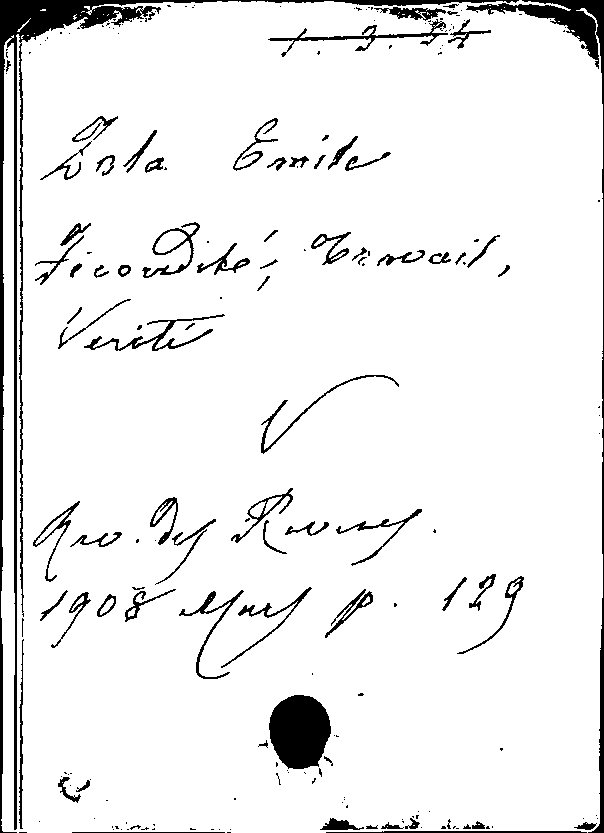 1. 3. 34
Zola Emile
Fécondité, Travail,
Verité
Rev. des Revues.
1908 Mars p. 129